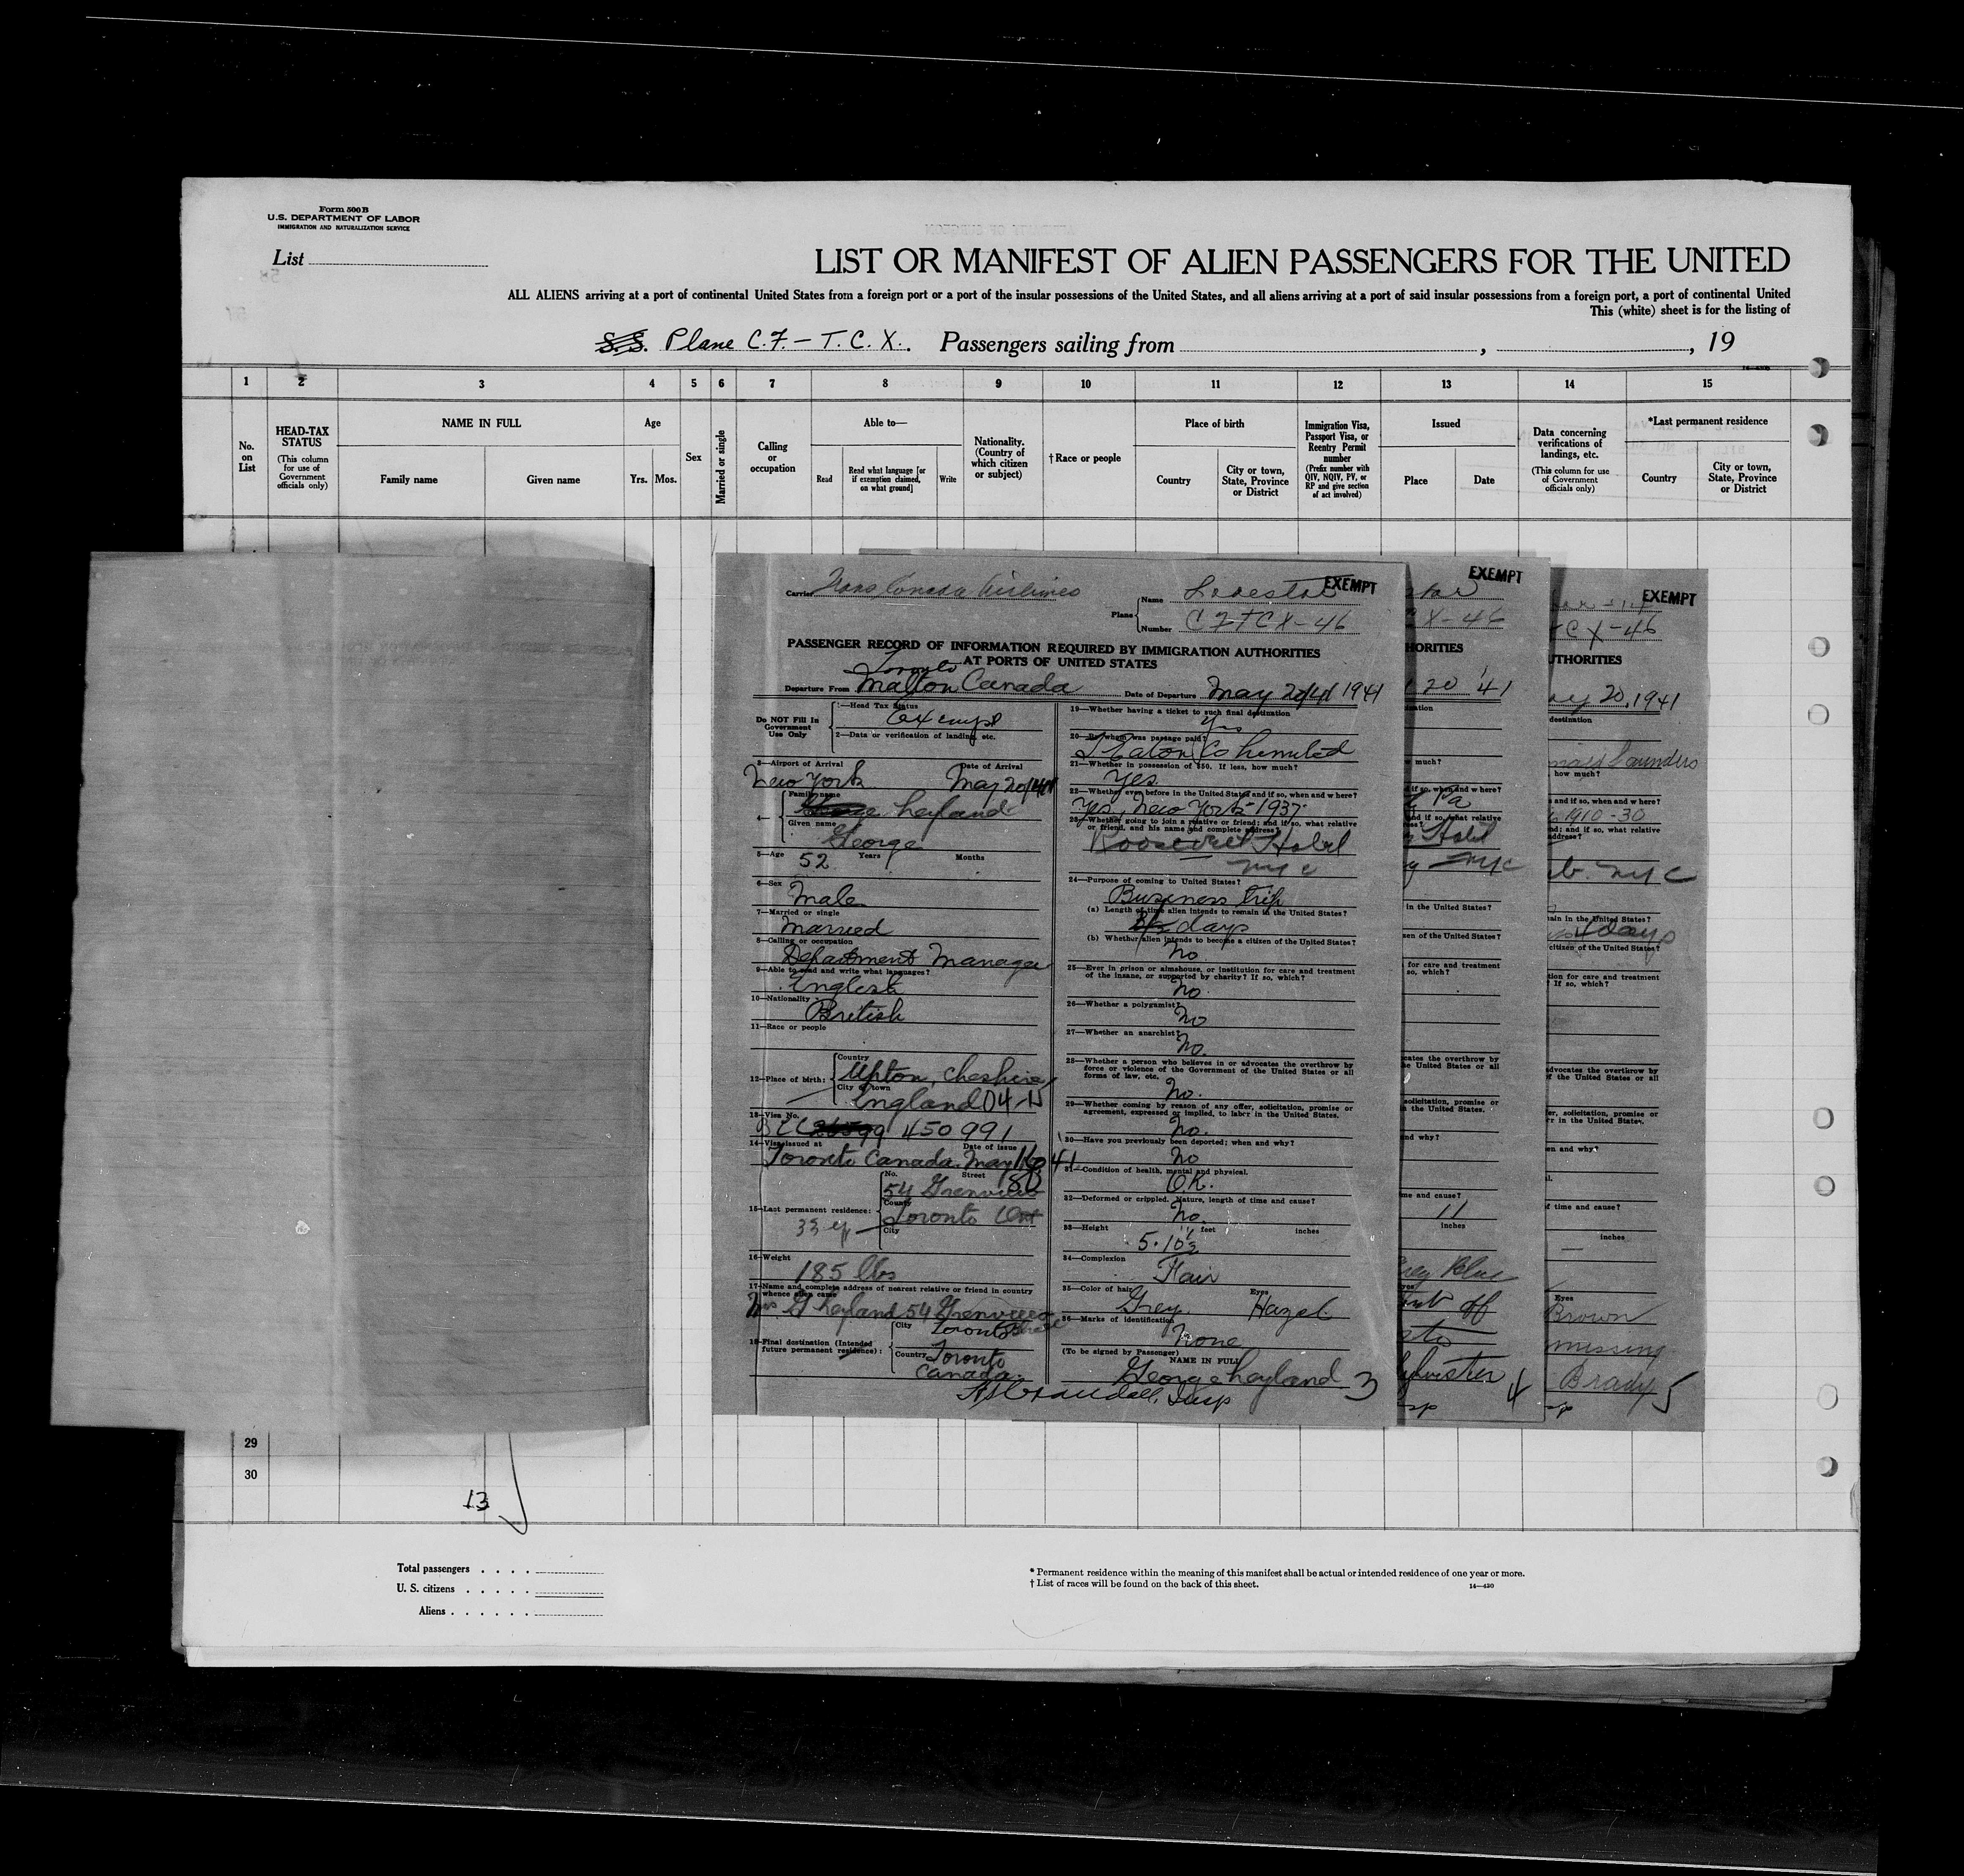 Form 500B
U.S. DEPARTMENT OF LABOR
IMMIGRATION AND NATURALIZATION SERVICE
List
LIST OR MANIFEST OF ALIEN PASSENGERS FOR THE UNITED
ALL ALIENS arriving at a port of continental United States from a foreign port or a port of the insular possessions of the United States, and all aliens arriving at a port of said insular possessions from a foreign port, a port of continental United
This (white) sheet is for the listing of
S.S. Plane C.F.-T.C.X. Passengers sailing from , , 19
1 2 3 4 5 6 7 8 9 10 11 12 13 14 15
No. on List
HEAD-TAX STATUS
(This column for use of Government officials only)
NAME IN FULL
Family name Given name
Age
Yrs. Mos.
Sex
Married or single
Calling or occupation
Able to—
Read
Read what language [or if exemption claimed, on what ground]
Write
Nationality. (Country of which citizen or subject)
†Race or people
Place of birth
Country
City or town, State, Province or District
Immigration Visa, Passport Visa, or Reentry Permit number
(Prefix number with QIV, NQIV, PV, or RP and give section of act involved)
Issued
Place Date
Data concerning verifications of landings, etc.
(This column for use of Government officials only)
*Last permanent residence
Country
City or town, State, Province or District
EXEMPT
Carrier Trans Canada Airlines
Plane Name Lodestar
Number CF TCX-46
PASSENGER RECORD OF INFORMATION REQUIRED BY IMMIGRATION AUTHORITIES
AT PORTS OF UNITED STATES
Toronto
Departure From Malton Canada Date of Departure May 20 1941
Do NOT Fill In
Government
Use Only
1—Head Tax Status
Exempt
2—Data or verification of landing, etc.
3—Airport of Arrival Date of Arrival
New York May 20/41
4— Family name
Leyland
Given name
George
5—Age 52 Years Months
6—Sex
Male
7—Married or single
Married
8—Calling or occupation
Department Manager
9—Able to read and write what languages?
English
10—Nationality
British
11—Race or people
12—Place of birth: Country
Upton, Cheshire
City or town
England
13—Visa No.
450991
14—Visa issued at Date of issue
Toronto Canada. May 16 41
15—Last permanent residence: No. Street
54 Grenville
County
Toronto Ont
City
16—Weight
185 lbs
17—Name and complete address of nearest relative or friend in country
whence alien came
Mrs G Leyland 54 Grenville
18—Final destination (Intended
future permanent residence): City Toronto
Country Toronto
Canada.
19—Whether having a ticket to such final destination
Yes
20—By whom was passage paid?
T. Eaton Co Limited
21—Whether in possession of $50. If less, how much?
Yes.
22—Whether ever before in the United States and if so, when and where?
Yes, New York-1937.
23—Whether going to join a relative or friend; and if so, what relative
or friend, and his name and complete address?
Roosevelt Hotel
NYC
24—Purpose of coming to United States?
Business trip
(a) Length of time alien intends to remain in the United States?
days
(b) Whether alien intends to become a citizen of the United States?
No
25—Ever in prison or almshouse, or institution for care and treatment
of the insane, or supported by charity? If so, which?
No.
26—Whether a polygamist?
No
27—Whether an anarchist?
No.
28—Whether a person who believes in or advocates the overthrow by
force or violence of the Government of the United States or all
forms of law, etc.
No.
29—Whether coming by reason of any offer, solicitation, promise or
agreement, expressed or implied, to labor in the United States.
No.
30—Have you previously been deported; when and why?
No
31—Condition of health, mental and physical.
OK.
32—Deformed or crippled. Nature, length of time and cause?
No.
33—Height feet inches
5.10½
34—Complexion
Fair
35—Color of hair Eyes
Grey. Hazel
36—Marks of identification
None
(To be signed by Passenger)
NAME IN FULL
George Leyland 3
EXEMPT
X-46
HORITIES
20 41
Pa
Hotel
NYC
11
inches
4
EXEMPT
X-46
UTHORITIES
20, 1941
destination
Saunders
how much?
1910-30
NYC
4 days
inches
Eyes
Brown
missing
Brady 5
29
30
13
Total passengers
U. S. citizens
Aliens
* Permanent residence within the meaning of this manifest shall be actual or intended residence of one year or more.
† List of races will be found on the back of this sheet.
14—430